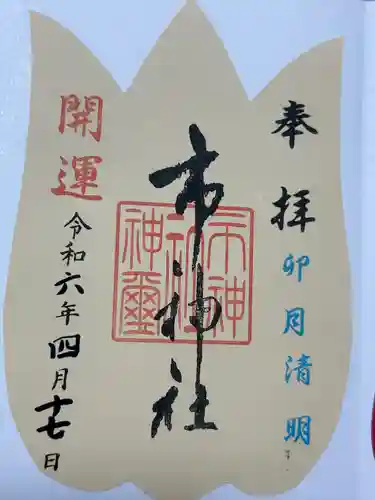 奉拝
卯月清明
市神社
市神
神社
神璽
開運
令和六年四月十七日